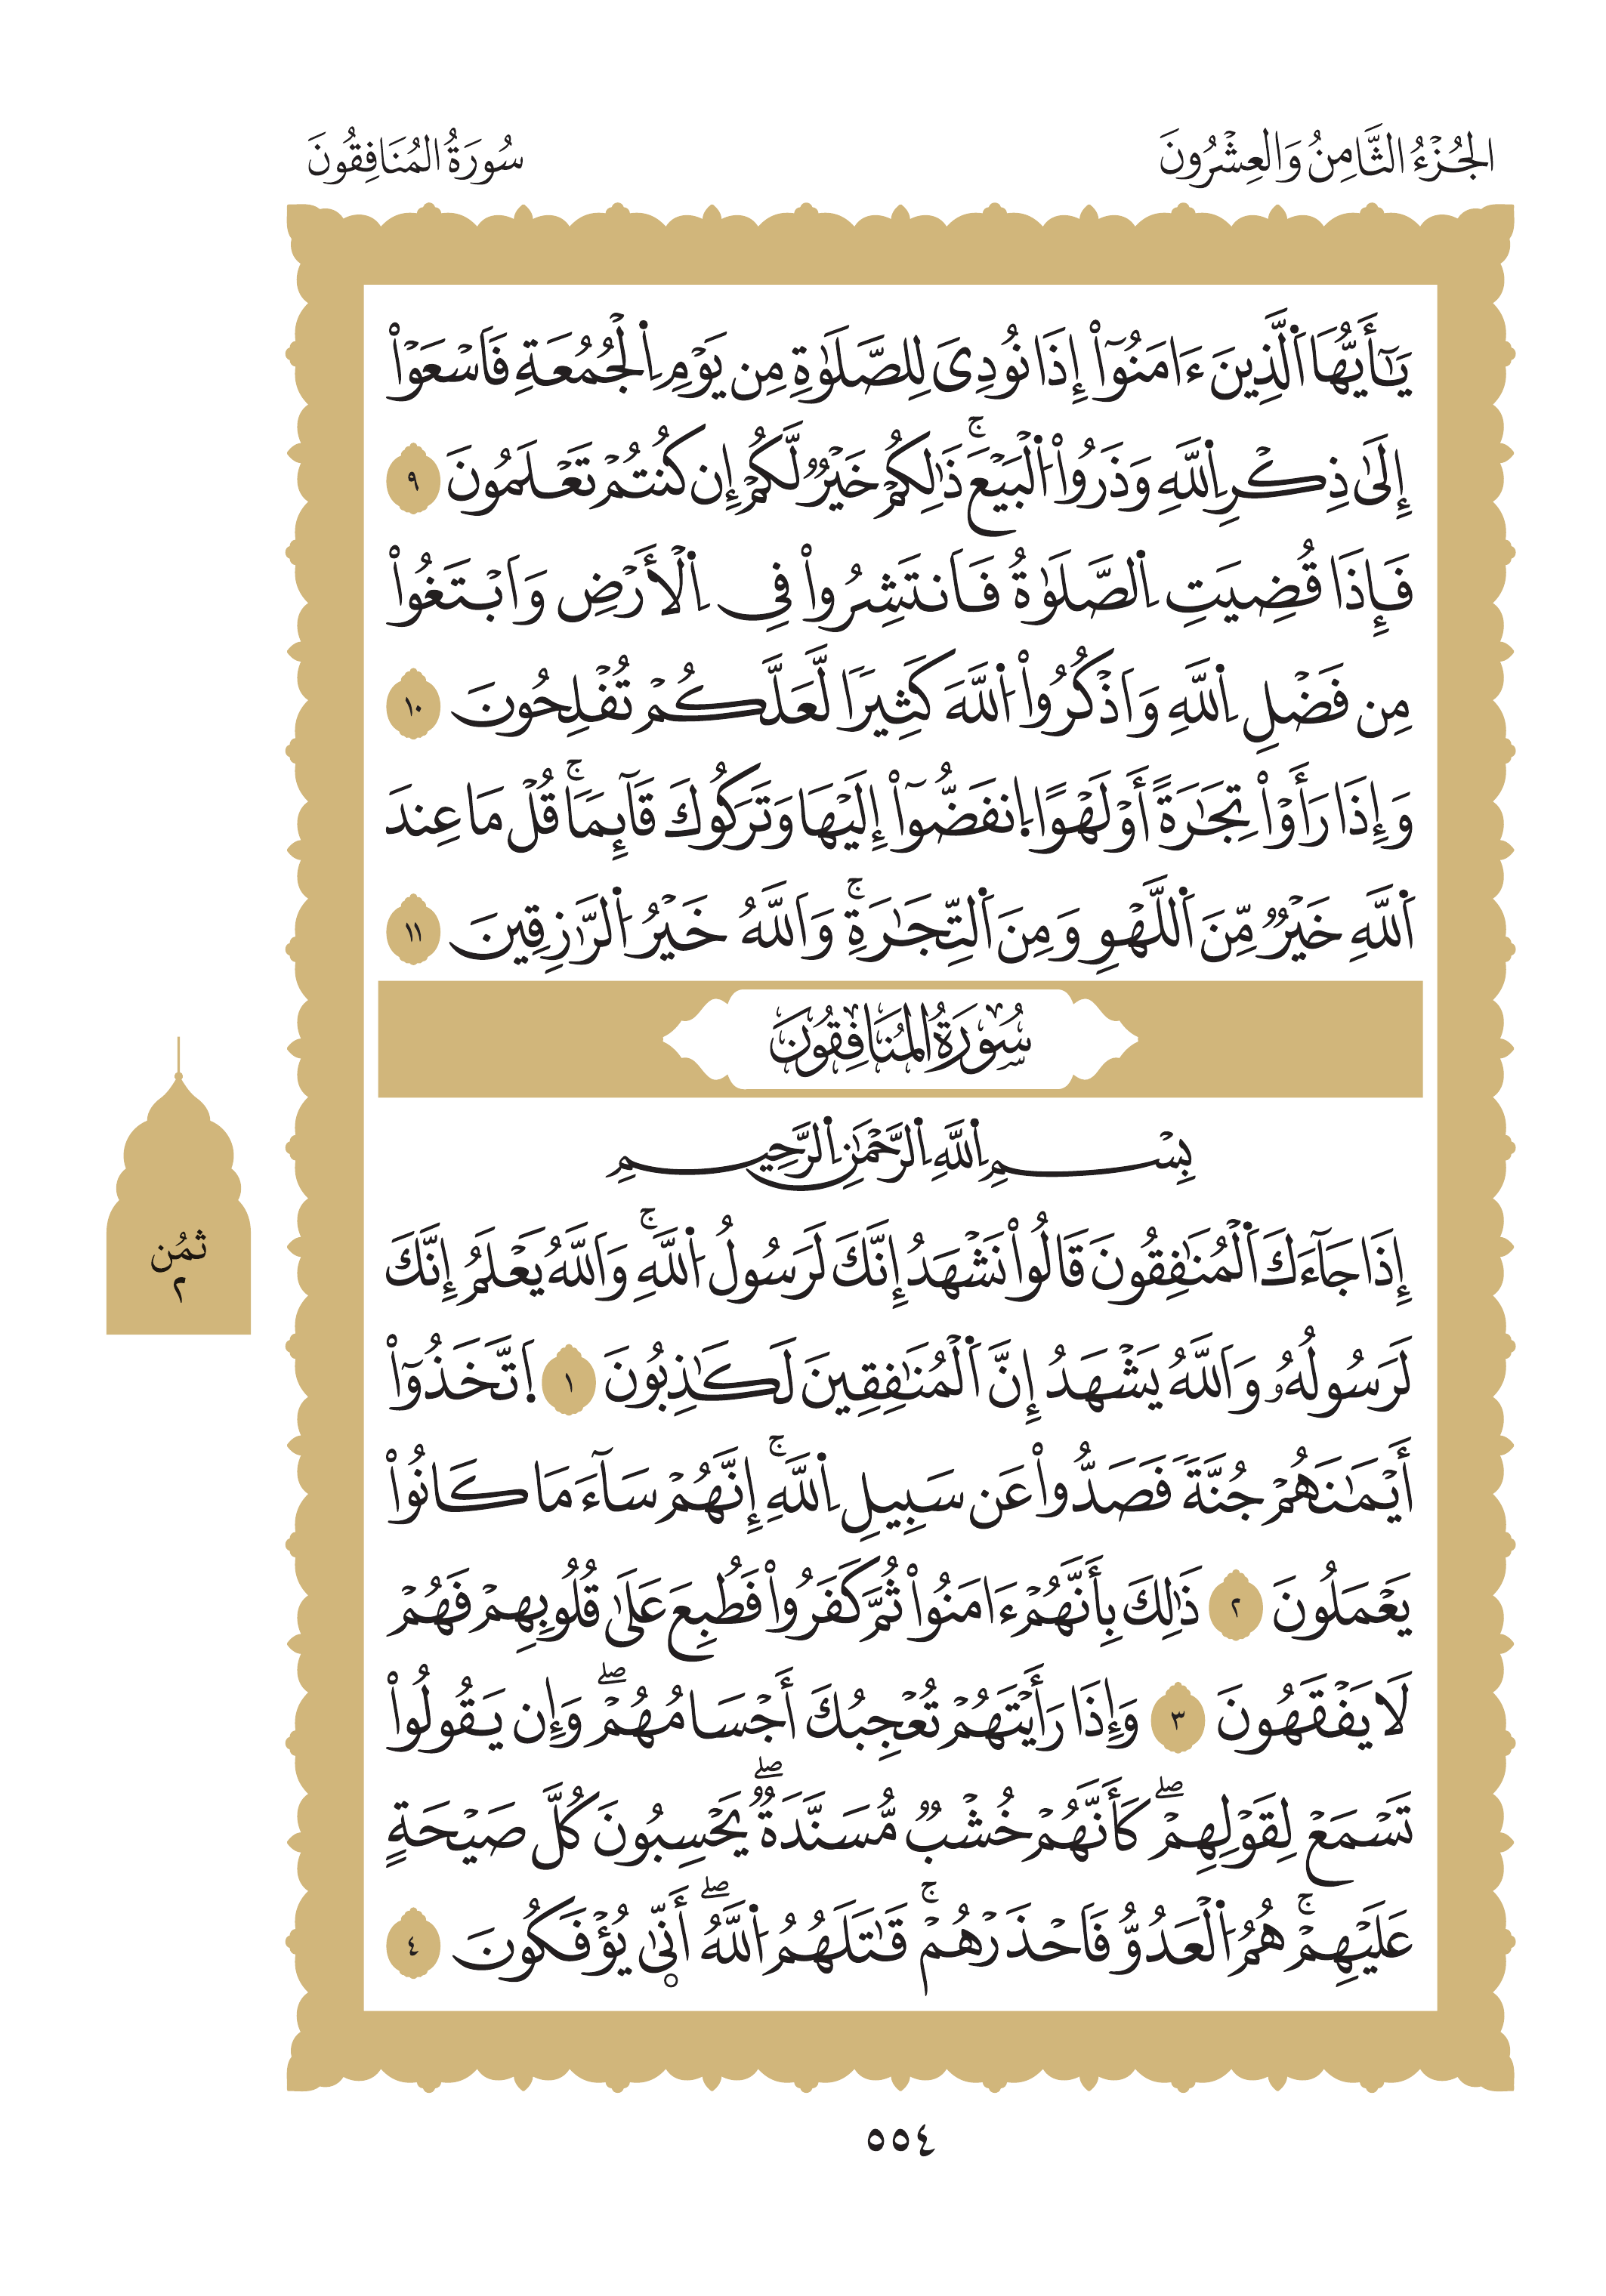 الجُزْءُ الثَّامِنُ وَالعِشْرُونَ
سُورَةُ المُنَافِقُونَ
يَٰٓأَيُّهَا اَ۬لَّذِينَ ءَامَنُوٓاْ إِذَا نُودِىَ لِلصَّلَوٰةِ مِن يَوْمِ اِ۬لْجُمُعَةِ فَاَسْعَوْاْ
إِلَىٰ ذِكْرِ اِ۬للَّهِ وَذَرُواْ اُ۬لْبَيْعَۚ ذَٰلِكُمْ خَيْرٞ لَّكُمْ إِن كُنتُمْ تَعْلَمُونَ ٩
فَإِذَا قُضِيَتِ اِ۬لصَّلَوٰةُ فَاَنتَشِرُواْ فِى اِ۬لْأَرْضِ وَاَبْتَغُواْ
مِن فَضْلِ اِ۬للَّهِ وَاَذْكُرُواْ اُ۬للَّهَ كَثِيرٗا لَّعَلَّكُمْ تُفْلِحُونَ ١٠
وَإِذَا رَأَوْاْ تِجَٰرَةً أَوْ لَهْوًا اِ۪نفَضُّوٓاْ إِلَيْهَا وَتَرَكُوكَ قَآئِمٗاۚ قُلْ مَا عِندَ
اَ۬للَّهِ خَيْرٞ مِّنَ اَ۬للَّهْوِ وَمِنَ اَ۬لتِّجَٰرَةِۚ وَاَللَّهُ خَيْرُ اُ۬لرَّٰزِقِينَ ١١
سُورَةُ المُنَافِقُونَ
بِسْمِ اِ۬للَّهِ اِ۬لرَّحْمَٰنِ اِ۬لرَّحِيمِ
إِذَا جَآءَكَ اَ۬لْمُنَٰفِقُونَ قَالُواْ نَشْهَدُ إِنَّكَ لَرَسُولُ اُ۬للَّهِۚ وَاَللَّهُ يَعْلَمُ إِنَّكَ
لَرَسُولُهُۥ وَاَللَّهُ يَشْهَدُ إِنَّ اَ۬لْمُنَٰفِقِينَ لَكَٰذِبُونَ ١ اِ۪تَّخَذُوٓاْ
أَيْمَٰنَهُمْ جُنَّةٗ فَصَدُّواْ عَن سَبِيلِ اِ۬للَّهِۚ إِنَّهُمْ سَآءَ مَا كَانُواْ
يَعْمَلُونَ ٢ ذَٰلِكَ بِأَنَّهُمْ ءَامَنُواْ ثُمَّ كَفَرُواْ فَطُبِعَ عَلَىٰ قُلُوبِهِمْ فَهُمْ
لَا يَفْقَهُونَ ٣ وَإِذَا رَأَيْتَهُمْ تُعْجِبُكَ أَجْسَامُهُمْۖ وَإِن يَقُولُواْ
تَسْمَعْ لِقَوْلِهِمْۖ كَأَنَّهُمْ خُشْبٞ مُّسَنَّدَةٞۖ يَحْسِبُونَ كُلَّ صَيْحَةٍ
عَلَيْهِمْۚ هُمُ اُ۬لْعَدُوُّ فَاَحْذَرْهُمْۚ قَٰتَلَهُمُ اُ۬للَّهُۖ أَنّ۪ىٰ يُؤْفَكُونَ ٤
ثُمُن
٢
٥٥٤